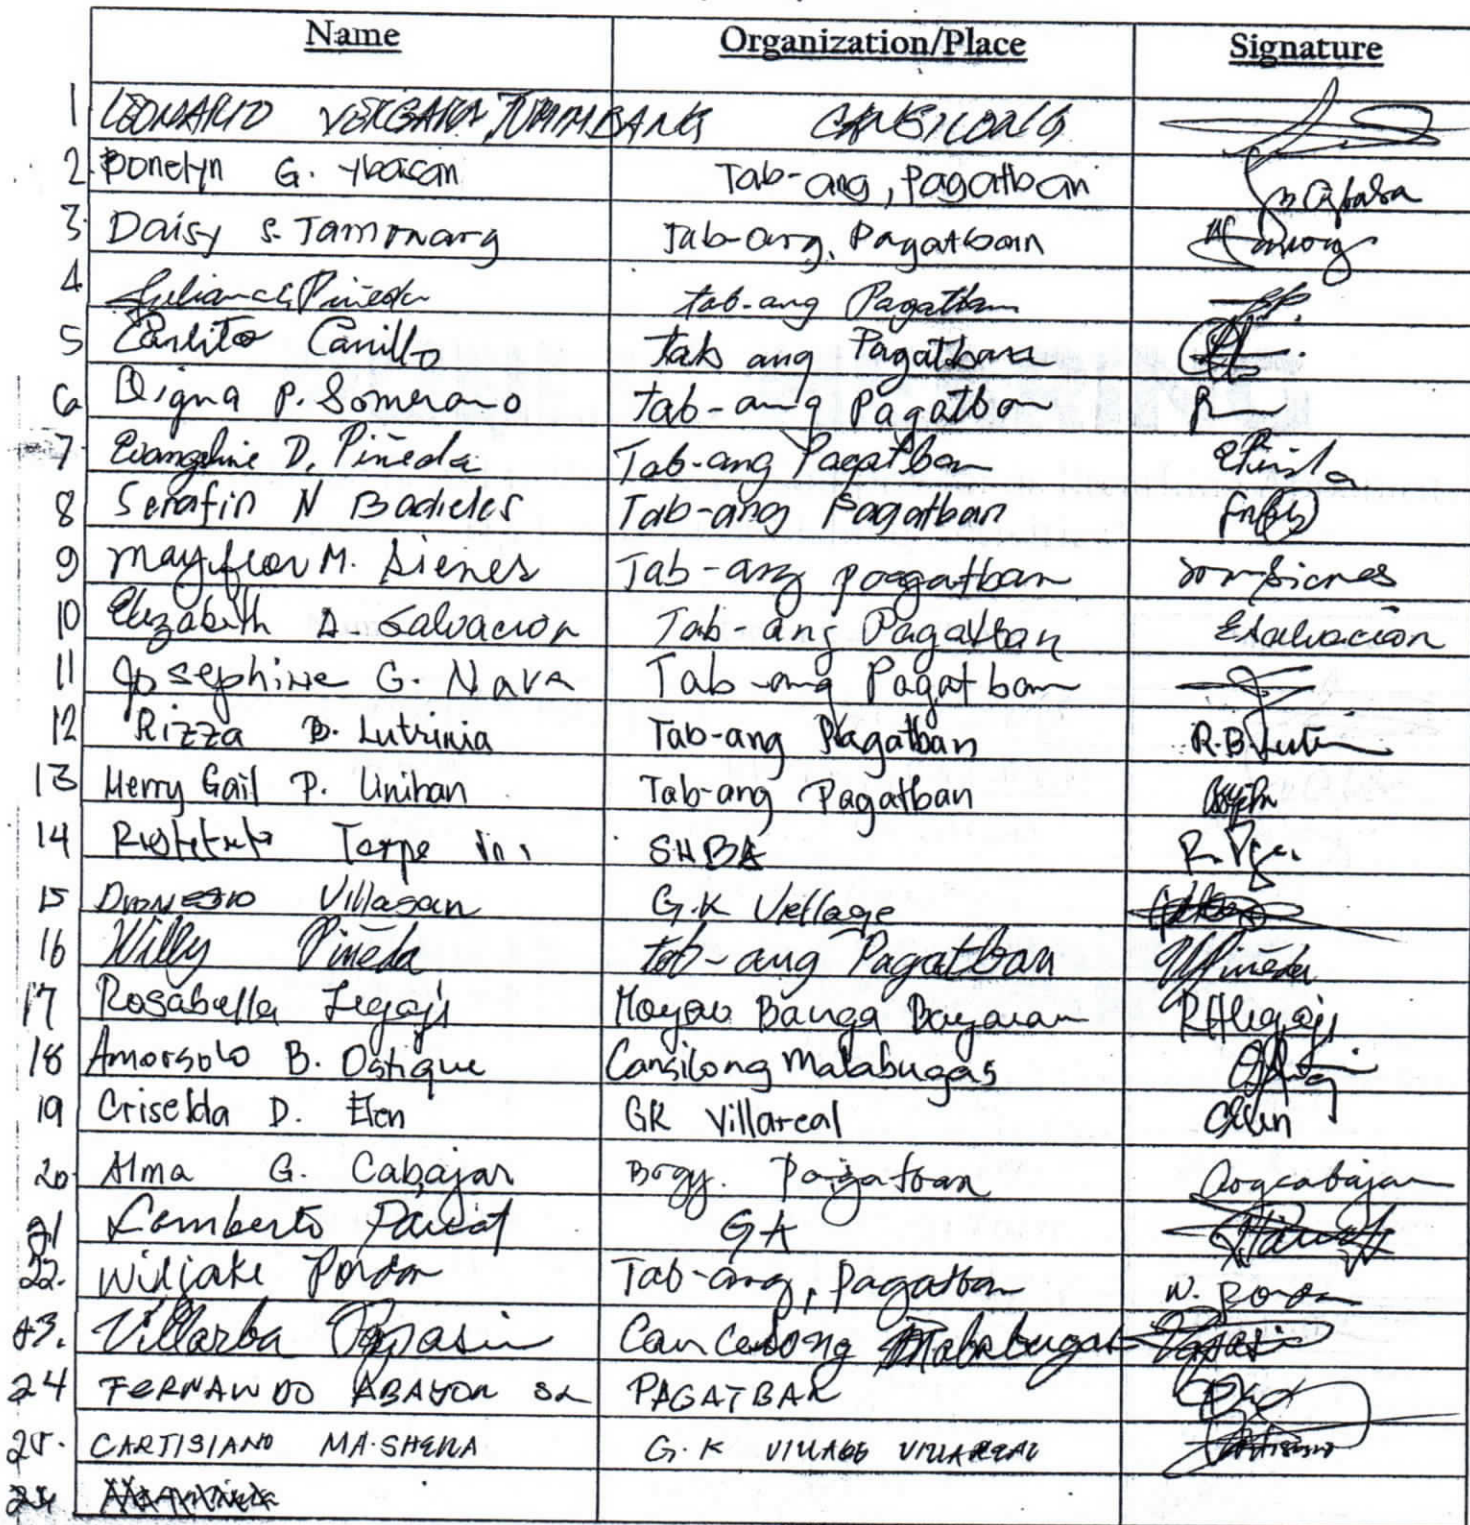 Name Organization/Place Signature
1 LEONARDO VERGARA TUMIMBANG CANSILONG
2. Bonelyn G. Ybasan Tab-ang, Pagatban
3. Daisy S. Tamonang Tab-ang, Pagatban
4 Pineda tab-ang Pagatban
5 Carlito Carillo tab ang Pagatban
6 Digna P. Somerano tab-ang Pagatban
7 Evangeline D. Piñeda Tab-ang Pagatban EPineda
8 Serafin N Badieles Tab-ang Pagatban
9 Mayflor M. Sienes Tab-ang pagatban Sienes
10 Elizabeth A. Salvacion Tab-ang Pagatban ESalvacion
11 Josephine G. Nava Tab-ang Pagatban
12 Rizza B. Lutrinia Tab-ang Pagatban R.B.
13 Merry Gail P. Unihan Tab-ang Pagatban
14 SHBA
15 Villasan G.K Vellage
16 Willy Piñeda tab-ang Pagatban WPiñeda
17 Rosabella Legaji Banga RHLegaji
18 Amorsolo B. Ostique Cansilong Malabugas
19 Criselda D. Elen GK Villareal CElen
20 Alma G. Cabajar Brgy. Pagatban
21 Lamberto GK
22. Wiljake Tab-ang, Pagatban W.
23. Villarba Malabugas
24 FERNANDO ABAYON SR PAGATBAN
25. CARTISIANO MA. SHEILA G.K VILLAGE VILLAREAL